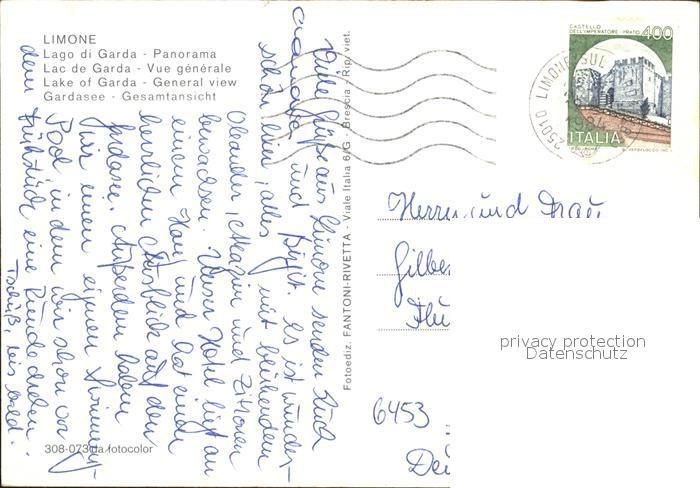 LIMONE
Lago di Garda - Panorama
Lac de Garda - Vue générale
Lake of Garda - General view
Gardasee - Gesamtansicht
Viele Grüße aus Limone senden Euch
und Birgit. Es ist wunder-
schön hier, alles mit blühendem
Oleander, und Zitronen
bewachsen. Unser Hotel liegt an
einem Hang und hat einen
herrlichen Ausblick auf den
Gardasee. Außerdem haben
wir einen eigenen Swimming-
Pool in dem wir schon vor
dem Frühstück eine Runde drehen.
Tschüß, bis bald.
308-073 da fotocolor
Fotoediz. FANTONI-RIVETTA - Viale Italia 6/G - Brescia - Rip. viet.
CASTELLO
DELL'IMPERATORE - PRATO 400
ITALIA
25010 LIMONE SUL
Herrn und Frau
Gilbe
6453
privacy protection
Datenschutz